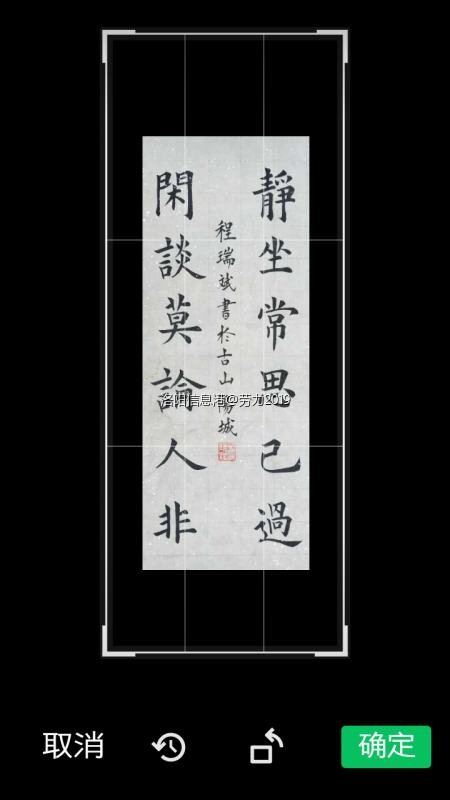 靜坐常思己過
閑談莫論人非
程瑞斌書於古山陽城
洛阳信息港@劳力2019
取消
确定